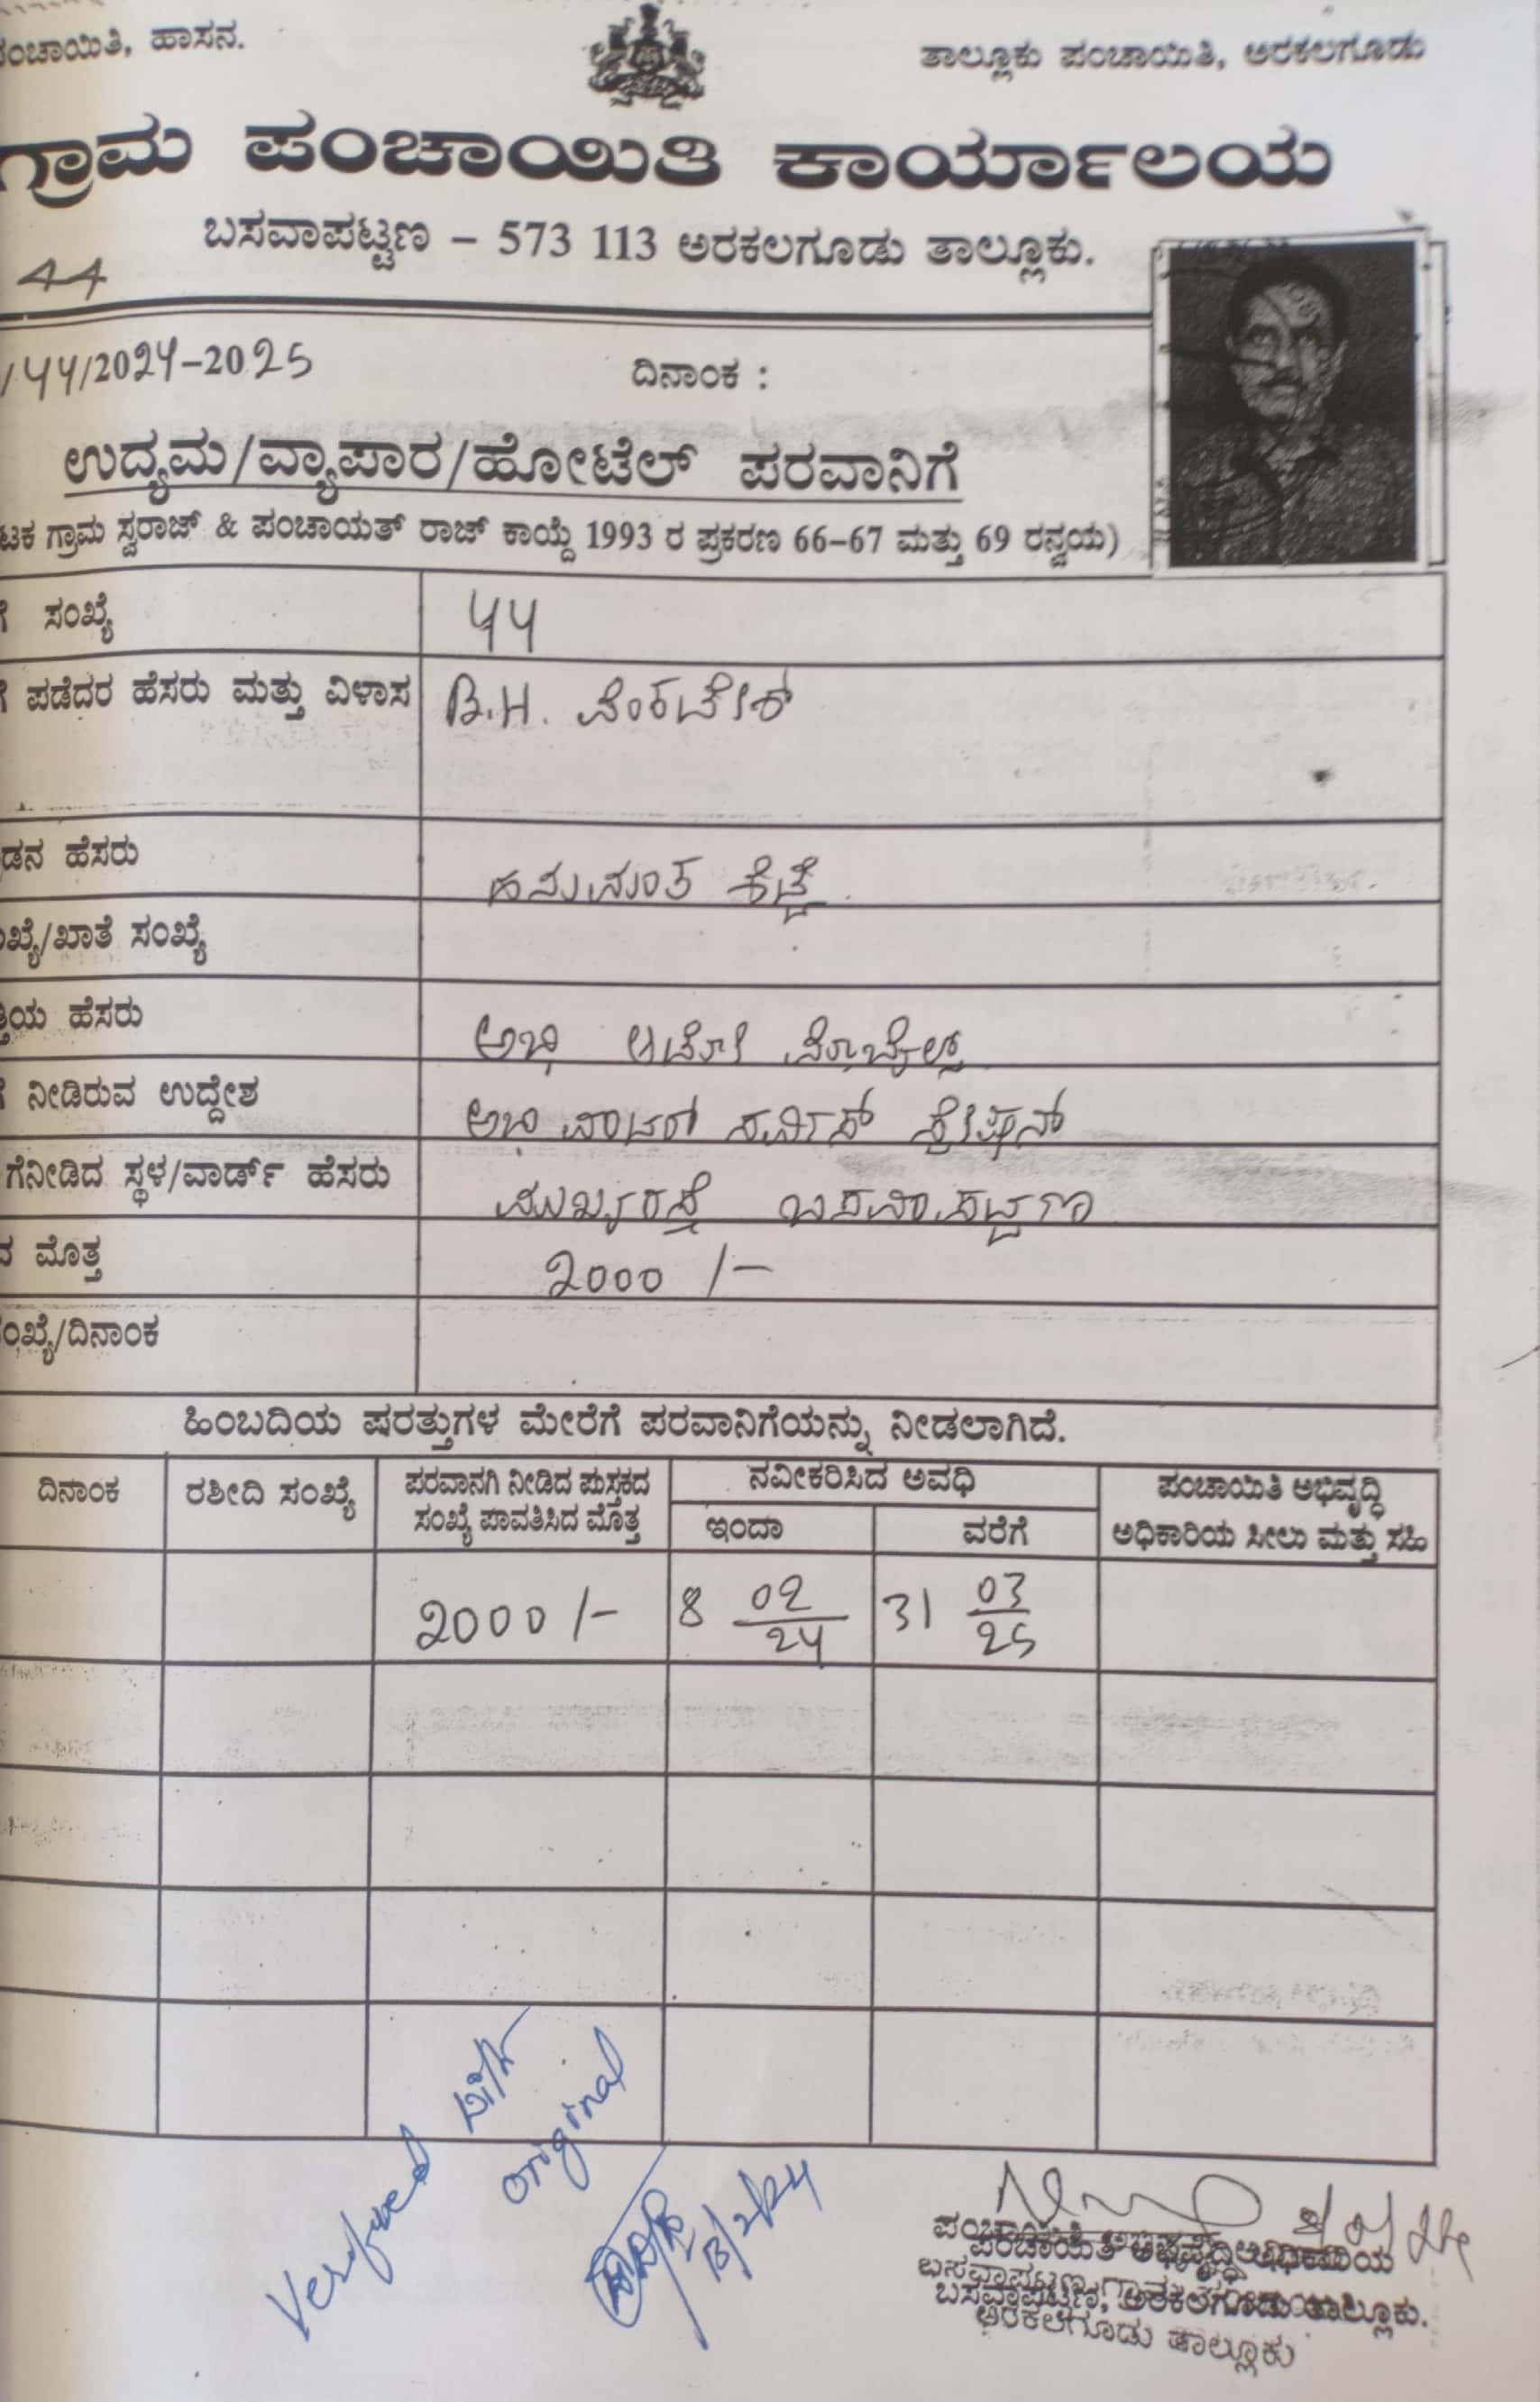 ಪಂಚಾಯಿತಿ, ಹಾಸನ.
ತಾಲ್ಲೂಕು ಪಂಚಾಯಿತಿ, ಅರಕಲಗೂಡು
ಗ್ರಾಮ ಪಂಚಾಯಿತಿ ಕಾರ್ಯಾಲಯ
ಬಸವಾಪಟ್ಟಣ – 573 113 ಅರಕಲಗೂಡು ತಾಲ್ಲೂಕು.
44
/44/2024-2025 ದಿನಾಂಕ :
ಉದ್ಯಮ/ವ್ಯಾಪಾರ/ಹೋಟೆಲ್ ಪರವಾನಿಗೆ
ಟಕ ಗ್ರಾಮ ಸ್ವರಾಜ್ & ಪಂಚಾಯತ್ ರಾಜ್ ಕಾಯ್ದೆ 1993 ರ ಪ್ರಕರಣ 66-67 ಮತ್ತು 69 ರನ್ವಯ)
ಗೆ ಸಂಖ್ಯೆ 44
ಗೆ ಪಡೆದರ ಹೆಸರು ಮತ್ತು ವಿಳಾಸ B.H. ವೆಂಕಟೇಶ್
ಡನ ಹೆಸರು ಹನುಮಂತ ಶೆಟ್ಟಿ
ಖ್ಯೆ/ಖಾತೆ ಸಂಖ್ಯೆ
ತ್ತಿಯ ಹೆಸರು ಅಭಿ ಆಟೋ ಮೊಬೈಲ್ಸ್
ಗೆ ನೀಡಿರುವ ಉದ್ದೇಶ ಅಭಿ ವಾಟರ್ ಸರ್ವಿಸ್ ಸ್ಟೇಷನ್
ಗೆನೀಡಿದ ಸ್ಥಳ/ವಾರ್ಡ್ ಹೆಸರು ಮುಖ್ಯರಸ್ತೆ ಬಸವಾಪಟ್ಟಣ
ದ ಮೊತ್ತ 2000/-
ಸಂಖ್ಯೆ/ದಿನಾಂಕ
ಹಿಂಬದಿಯ ಷರತ್ತುಗಳ ಮೇರೆಗೆ ಪರವಾನಿಗೆಯನ್ನು ನೀಡಲಾಗಿದೆ.
ದಿನಾಂಕ ರಶೀದಿ ಸಂಖ್ಯೆ ಪರವಾನಗಿ ನೀಡಿದ ಪುಸ್ತಕದ ಸಂಖ್ಯೆ ಪಾವತಿಸಿದ ಮೊತ್ತ ನವೀಕರಿಸಿದ ಅವಧಿ ಪಂಚಾಯಿತಿ ಅಭಿವೃದ್ಧಿ ಅಧಿಕಾರಿಯ ಸೀಲು ಮತ್ತು ಸಹಿ
ಇಂದಾ ವರೆಗೆ
2000/- 8 02/24 31 03/25
Verified with
original
13/2/24
ಪಂಚಾಯಿತಿ ಅಭಿವೃದ್ಧಿ ಅಧಿಕಾರಿಯ
ಬಸವಾಪಟ್ಟಣ, ಅರಕಲಗೂಡು ತಾಲ್ಲೂಕು.
ಅರಕಲಗೂಡು ತಾಲ್ಲೂಕು